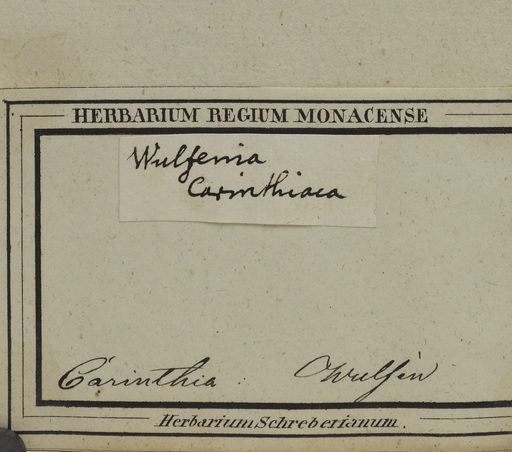 HERBARIUM REGIUM MONACENSE
Wulfenia
Carinthiaca
Carinthia. Wulfen
Herbarium Schreberianum.